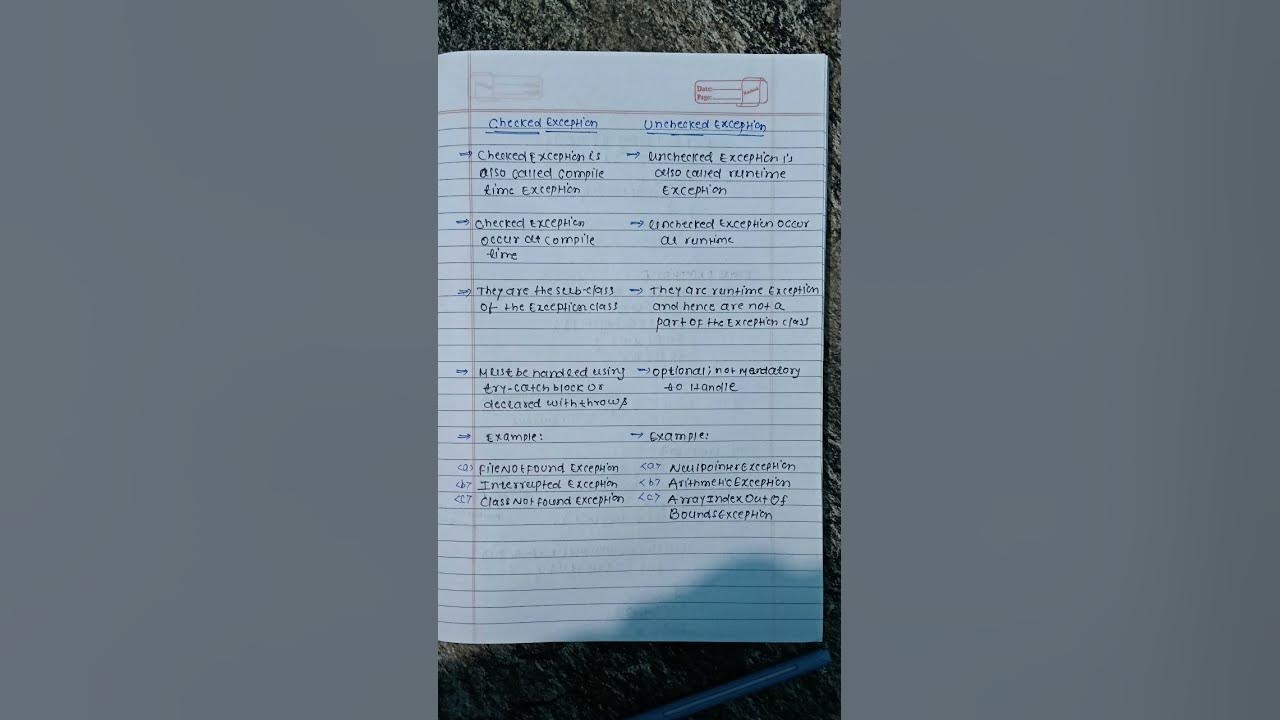 Date:
Page:
Checked Exception
Unchecked Exception
→ Checked Exception is
also called compile
time Exception
→ Unchecked Exception is
also called runtime
Exception
→ Checked Exception
occur at compile
time
→ Unchecked Exception occur
at runtime
⇒ They are the sub-class
of the Exception class
→ They are runtime Exception
and hence are not a
part of the Exception class
⇒ Must be handled using
try-catch block or
declared with throws
→ optional; not mandatory
to Handle
⇒ Example:
<a> FileNotFound Exception
<b> Interrupted Exception
<c> ClassNotFound Exception
→ Example:
<a> NullPointerException
<b> ArithmeticException
<c> ArrayIndexOutOf
BoundsException